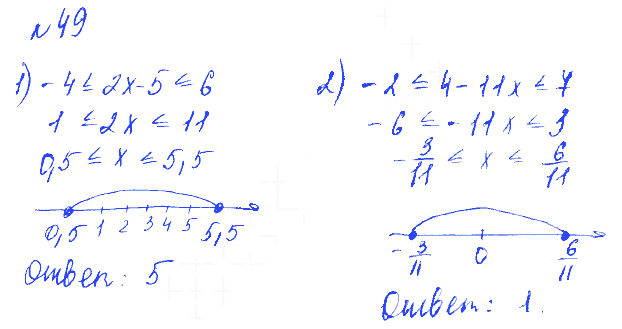 №49
1) -4 ≤ 2x-5 ≤ 6
1 ≤ 2x ≤ 11
0,5 ≤ x ≤ 5,5
0,5 1 2 3 4 5 5,5
Ответ: 5
2) -2 ≤ 4-11x ≤ 7
-6 ≤ -11x ≤ 3
-3/11 ≤ x ≤ 6/11
-3/11 0 6/11
Ответ: 1.